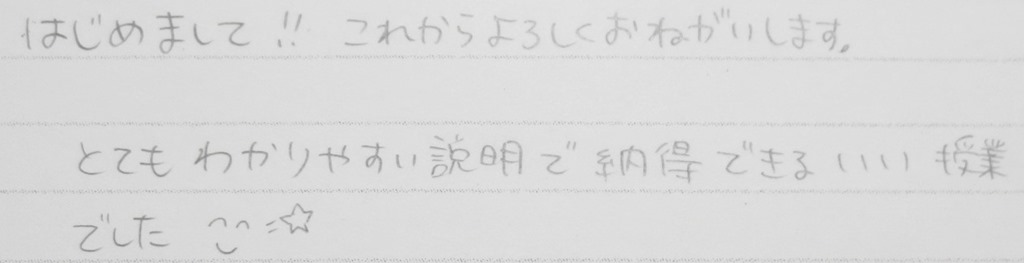 はじめまして!! これからよろしくおねがいします。
とても わかりやすい説明で 納得できる いい 授業
でした ☆